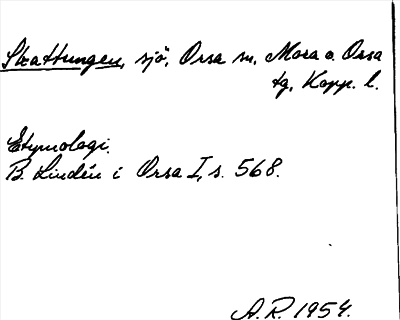 Skattungen, sjö, Orsa sn, Mora o. Orsa
tg, Kopp. l.
Etymologi.
B. Lindén i Orsa I, s. 568.
A.R. 1954.